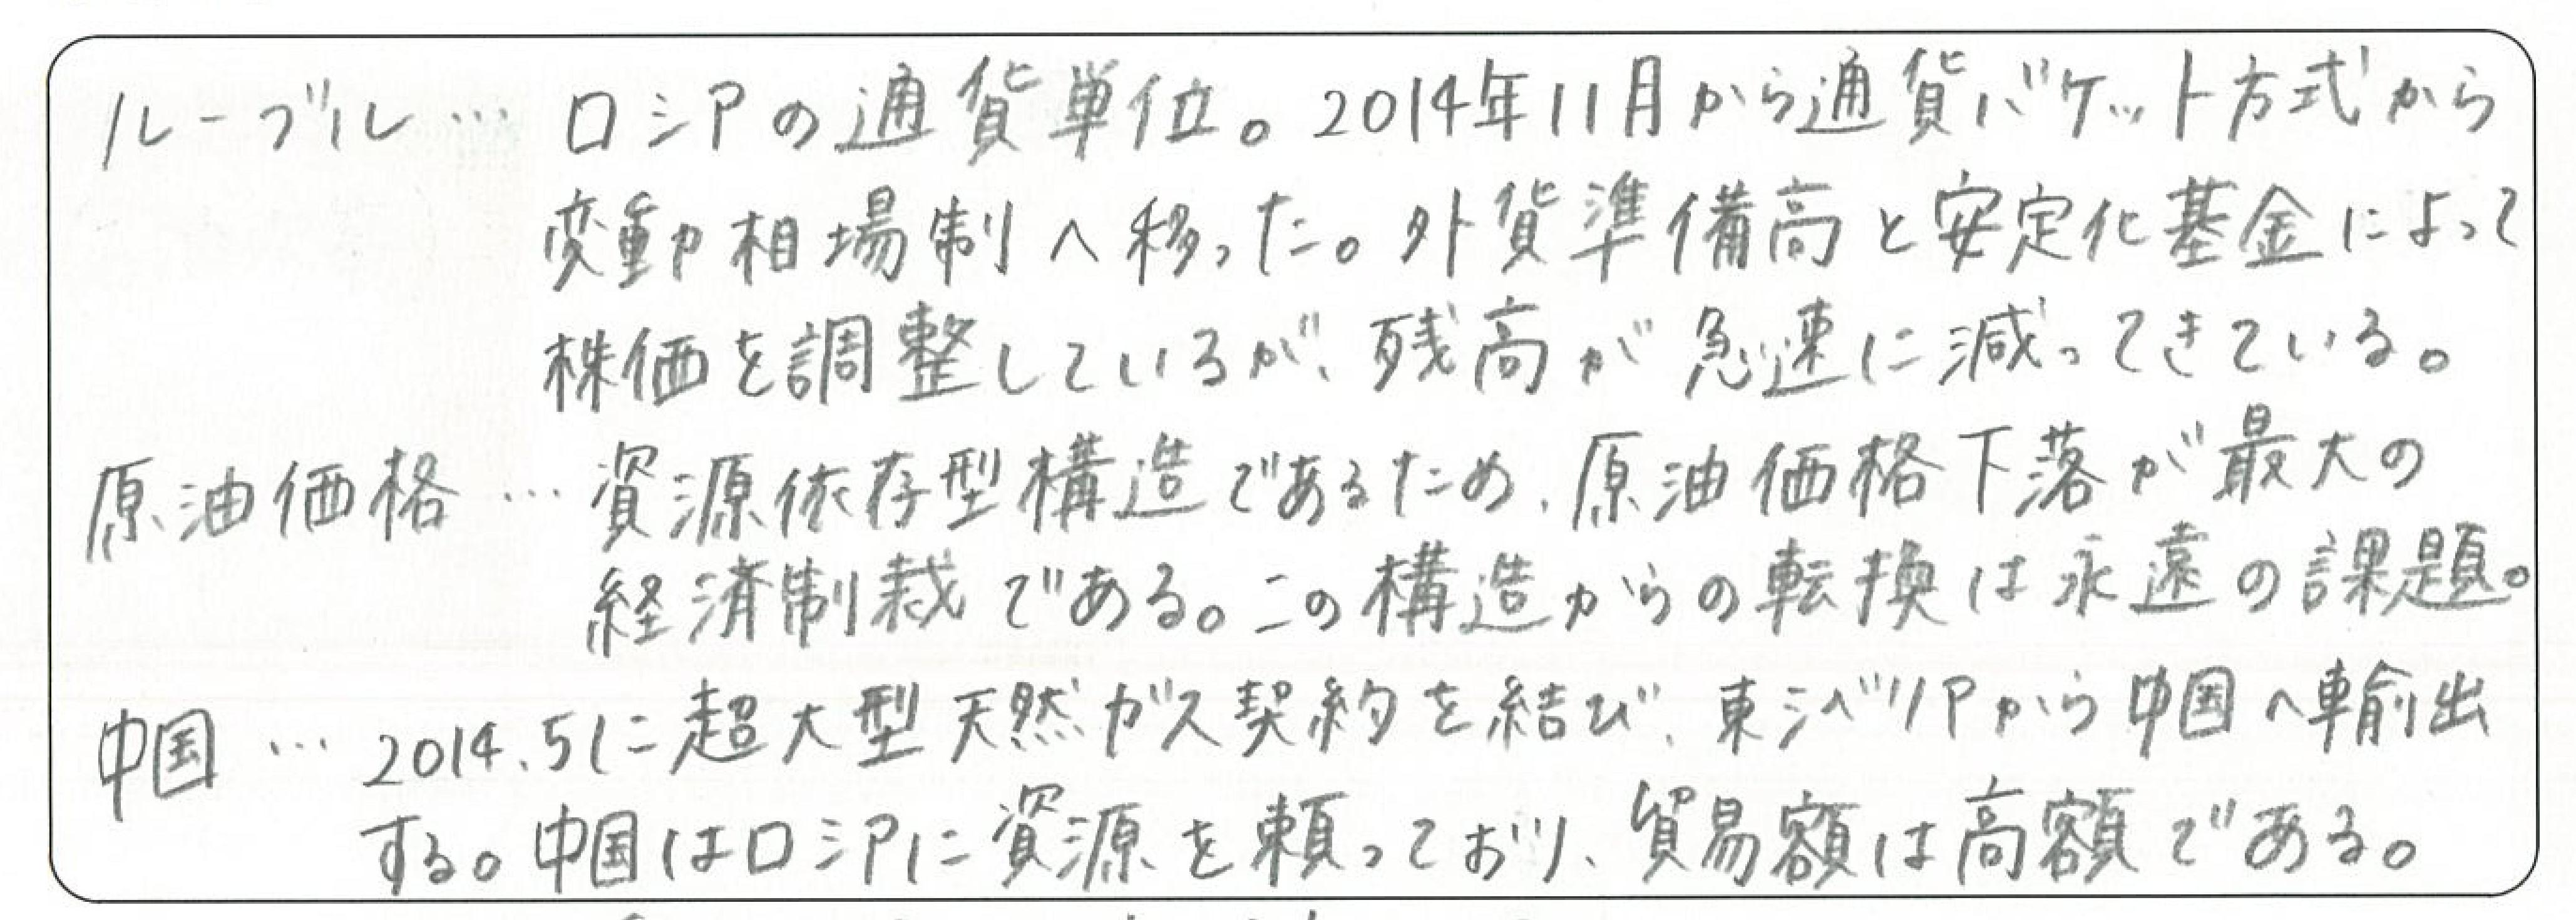 ルーブル… ロシアの通貨単位。2014年11月から通貨バケット方式から
変動相場制へ移った。外貨準備高と安定化基金によって
株価を調整しているが、残高が急速に減ってきている。
原油価格… 資源依存型構造であるため、原油価格下落が最大の
経済制裁である。この構造からの転換は永遠の課題。
中国… 2014.5に超大型天然ガス契約を結び、東シベリアから中国へ輸出
する。中国はロシアに資源を頼っており、貿易額は高額である。